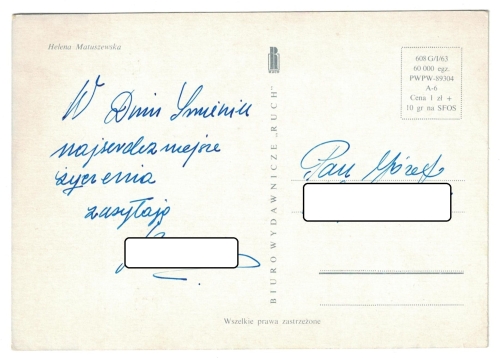 Helena Matuszewska
RUCH
608 G/I/63
60 000 egz.
PWPW-89304
A-6
Cena 1 zł +
10 gr na SFOS
W Dniu Imienin
najserdeczniejsze
życzenia
zasyłają
BIURO WYDAWNICZE „RUCH”
Pan Józef
Wszelkie prawa zastrzeżone